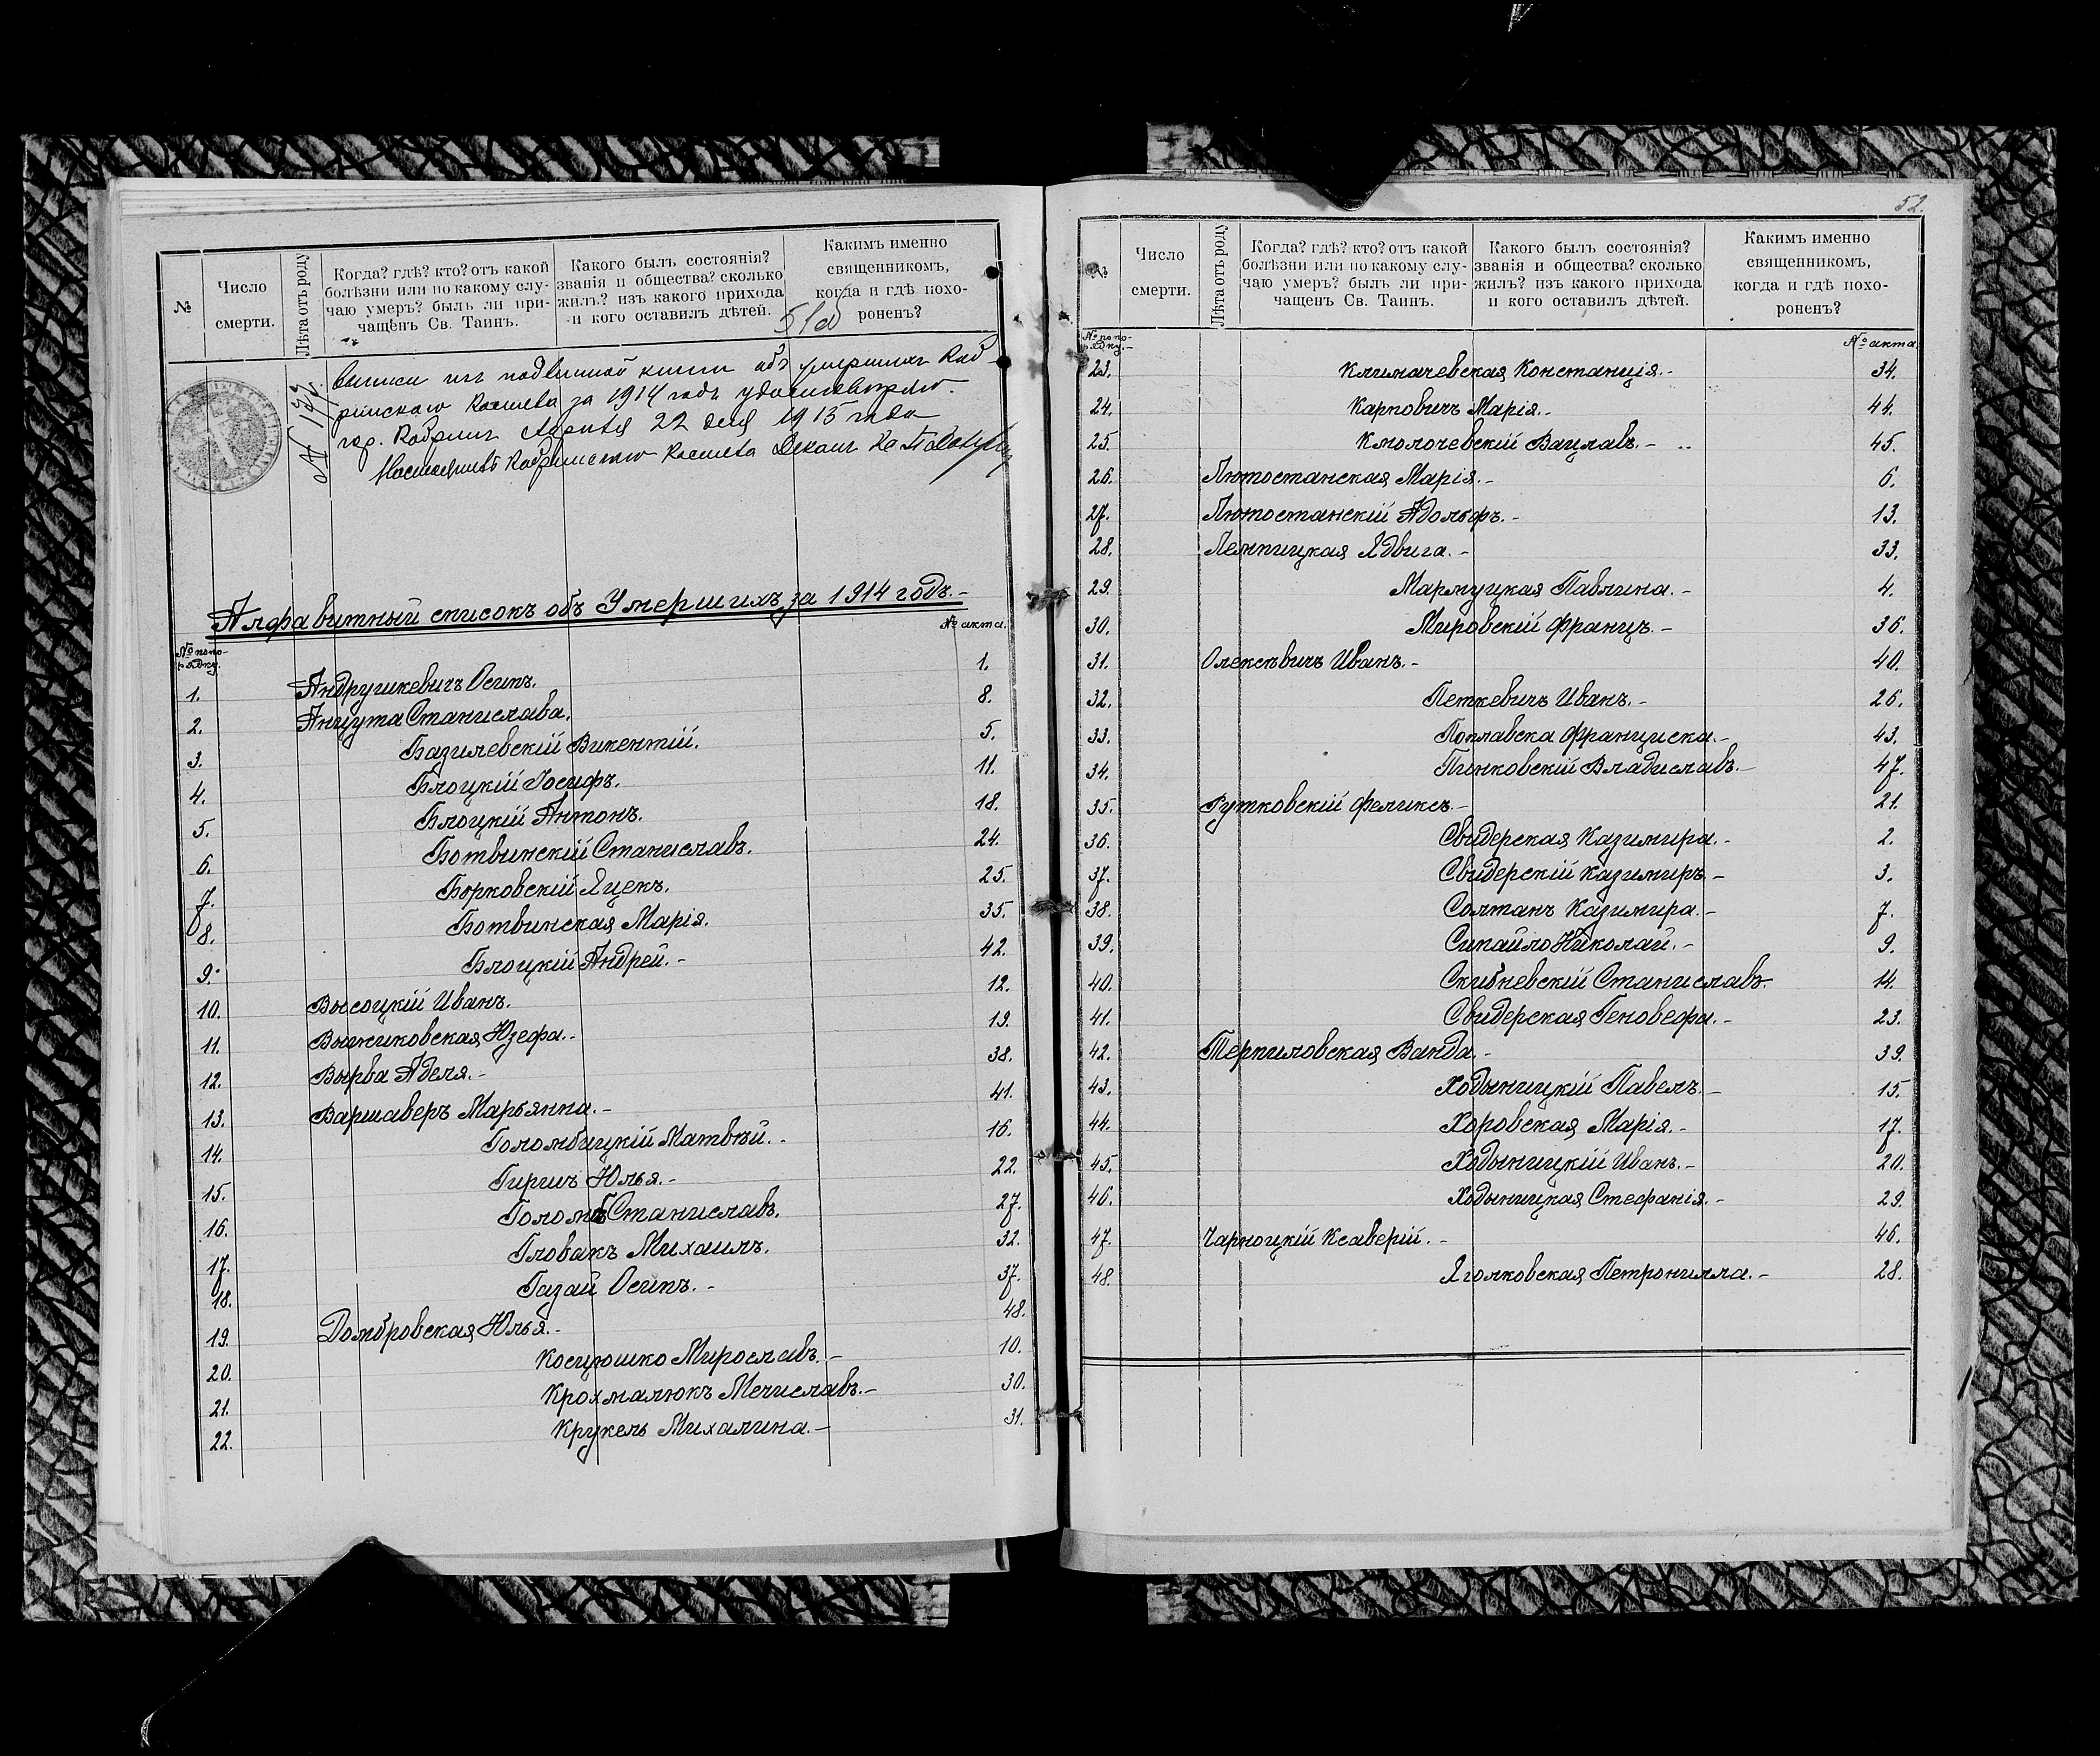 №
Число
смерти.
Лѣта отъ роду
Когда? гдѣ? кто? отъ какой
болѣзни или по какому слу-
чаю умеръ? былъ ли при-
чащёнъ Св. Таинъ.
Какого былъ состоянія?
званія и общества? сколько
жилъ? изъ какого прихода
и кого оставилъ дѣтей.
Какимъ именно
священникомъ,
когда и гдѣ похо-
роненъ?
51об
№ 133
выписи изъ подлинной книги объ умершихъ Коб-
ринскаго Костела за 1914 годъ удостовѣряю.
гор. Кобринъ Апрѣля 22 дня 1915 года
Настоятель Кобринскаго Костела Деканъ
Алфавитный списокъ объ Умершихъ за 1914 годъ.-
№ по по-
рядку.
№ акта.
1. Андрушкевичъ Осипъ. 1.
2. Анцута Станислава. 8.
3. Базилевскій Викентій. 5.
4. Блоцкій Іосифъ. 11.
5. Блоцкій Антонъ. 18.
6. Ботвинскій Станиславъ. 24.
7. Борковскій Яцекъ. 25.
8. Ботвинская Марія. 35.
9. Блоцкій Андрей.- 42.
10. Высоцкій Иванъ. 12.
11. Выжиковская Юзефа.- 19.
12. Вырва Аделя.- 38.
13. Варшаверъ Марьянна.- 41.
14. Голомбицкій Матвѣй.- 16.
15. Гиричъ Юлья.- 22.
16. Голомбъ Станиславъ. 27.
17. Гловакъ Михаилъ. 32.
18. Газай Осипъ.- 37.
19. Домбровская Юлья.- 48.
20. Косцюшко Мирославъ.- 10.
21. Крохмалюкъ Мечиславъ.- 30.
22. Крукель Михалина.- 31.
52.
№
Число
смерти.
Лѣта отъ роду
Когда? гдѣ? кто? отъ какой
болѣзни или по какому слу-
чаю умеръ? былъ ли при-
чащенъ Св. Таинъ.
Какого былъ состоянія?
званія и общества? сколько
жилъ? изъ какого прихода
и кого оставилъ дѣтей.
Какимъ именно
священникомъ,
когда и гдѣ похо-
роненъ?
№ по по-
рядку.-
№ акта
23. Климачевская Констанція.- 34.
24. Карповичъ Марія.- 44.
25. Кмолочевскій Вацлавъ.- 45.
26. Лютостанская Марія.- 6.
27. Лютостанскій Адольфъ.- 13.
28. Лемпицкая Ядвига.- 33.
29. Мармуцкая Павлина.- 4.
30. Мировскій Францъ.- 36.
31. Олексѣвичъ Иванъ.- 40.
32. Петкевичъ Иванъ.- 26.
33. Поплавска Франциска.- 43.
34. Пинковскій Владиславъ.- 47.
35. Рутковскій Феликсъ.- 21.
36. Свидерская Казимира.- 2.
37. Свидерскій Казимиръ- 3.
38. Солтанъ Казимира.- 7.
39. Сипайло Николай.- 9.
40. Скибневскій Станиславъ. 14.
41. Свидерская Геновефа.- 23.
42. Терпиловская Ванда.- 39.
43. Ходыницкій Павелъ.- 15.
44. Хоровская Марія.- 17.
45. Ходыницкій Иванъ.- 20.
46. Ходыницкая Стефанія.- 29.
47. Чарноцкій Ксаверій.- 46.
48. Яголковская Петронилла.- 28.